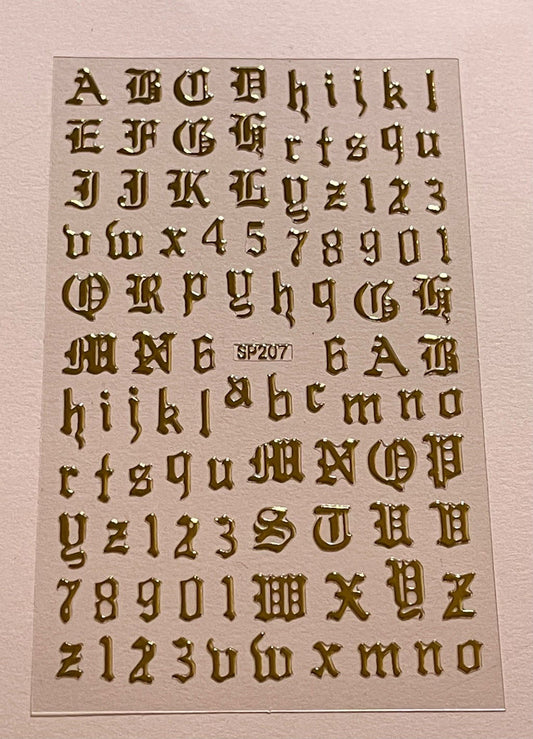 A B C D h i j k l
E F G H r t s q u
I J K L y z 1 2 3
v w x 4 5 7 8 9 0 1
Q R p y h q G H
M N 6 SP207 6 A B
h i j k l a b c m n o
r t s q u M N O P
y z 1 2 3 S T U V
7 8 9 0 1 W X Y Z
z 1 2 3 v w x m n o